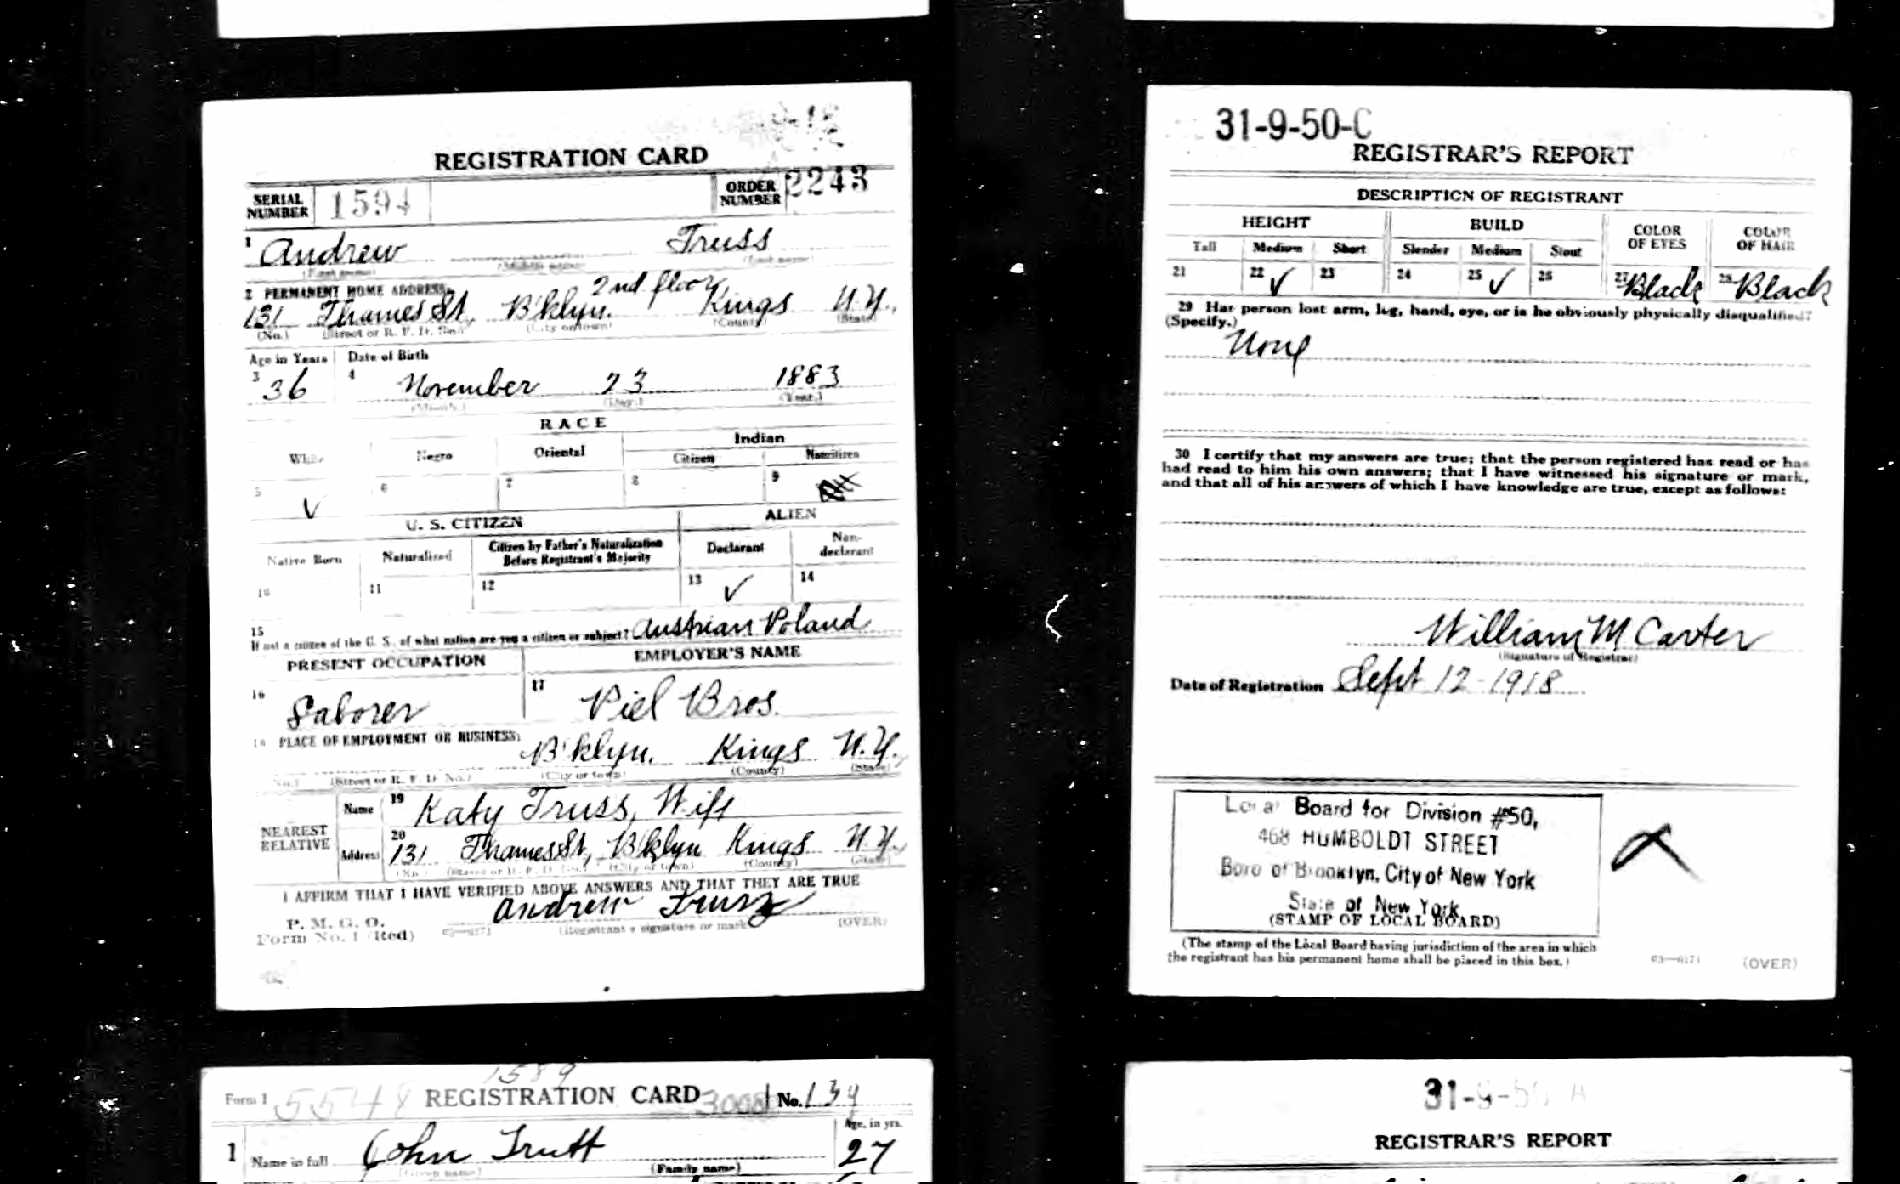 REGISTRATION CARD
SERIAL NUMBER 1594 ORDER NUMBER 2243
1 Andrew Truss
(First name) (Middle name) (Last name)
2 PERMANENT HOME ADDRESS: 2nd floor
131 Thames St, B'klyn. Kings N.Y.,
(No.) (Street or R. F. D. No.) (City or town) (County) (State)
Age in Years Date of Birth
3 36 4 November 23 1883
(Month.) (Day.) (Year.)
RACE
White Negro Oriental Indian
Citizen Noncitizen
5 ✓ 6 7 8 9
U. S. CITIZEN ALIEN
Native Born Naturalized Citizen by Father's Naturalization Before Registrant's Majority Declarant Non-declarant
10 11 12 13 ✓ 14
15
If not a citizen of the U. S., of what nation are you a citizen or subject? Austrian Poland
PRESENT OCCUPATION EMPLOYER'S NAME
16 Laborer 17 Piel Bros.
18 PLACE OF EMPLOYMENT OR BUSINESS:
B'klyn. Kings N.Y.,
(No.) (Street or R. F. D. No.) (City or town) (County) (State)
NEAREST RELATIVE
Name 19 Katy Truss, Wife
Address 20 131 Thames St, B'klyn Kings N.Y.
(No.) (Street or R. F. D. No.) (City or town) (County) (State)
I AFFIRM THAT I HAVE VERIFIED ABOVE ANSWERS AND THAT THEY ARE TRUE
P. M. G. O.
Form No. 1 (Red) 03—6171 Andrew Truss
(Registrant's signature or mark) (OVER)
31-9-50-C
REGISTRAR'S REPORT
DESCRIPTION OF REGISTRANT
HEIGHT BUILD COLOR OF EYES COLOR OF HAIR
Tall Medium Short Slender Medium Stout
21 22 ✓ 23 24 25 ✓ 26 27 Black 28 Black
29 Has person lost arm, leg, hand, eye, or is he obviously physically disqualified?
(Specify.)
None
30 I certify that my answers are true; that the person registered has read or has
had read to him his own answers; that I have witnessed his signature or mark,
and that all of his answers of which I have knowledge are true, except as follows:
William M Carter
(Signature of Registrar)
Date of Registration Sept 12-1918
Local Board for Division #50,
468 HUMBOLDT STREET
Boro of Brooklyn, City of New York
State of New York
(STAMP OF LOCAL BOARD)
(The stamp of the Local Board having jurisdiction of the area in which
the registrant has his permanent home shall be placed in this box.)
03—6171 (OVER)
1589
Form 1 5548 REGISTRATION CARD 3008 No. 134
1 Name in full John Trutt Age, in yrs. 27
(Given name) (Family name)
31-9-50 A
REGISTRAR'S REPORT